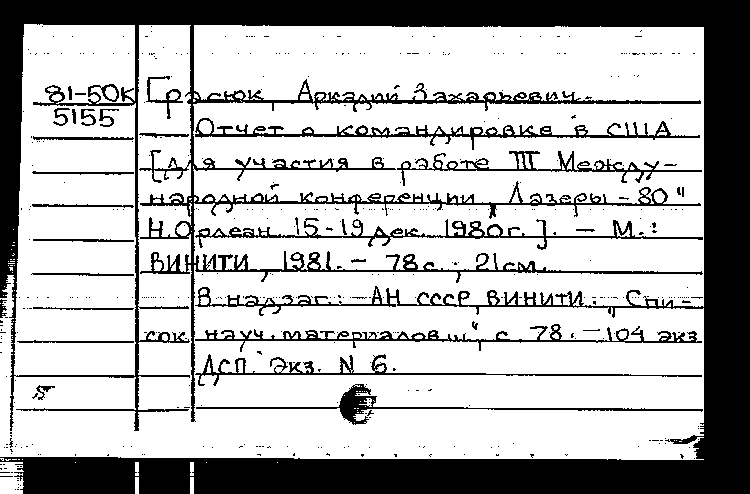 81-50К Грасюк, Аркадий Захарьевич.
5155
Отчет о командировке в США
[для участия в работе III Между-
народной конференции „Лазеры - 80"
Н.Орлеан 15-19 дек. 1980г.]. - М.:
ВИНИТИ, 1981. - 78с.; 21см.
В надзаг.: АН СССР, ВИНИТИ. „Спи-
сок науч. материалов...", с. 78. - 104 экз
ДСП. Экз. N 6.